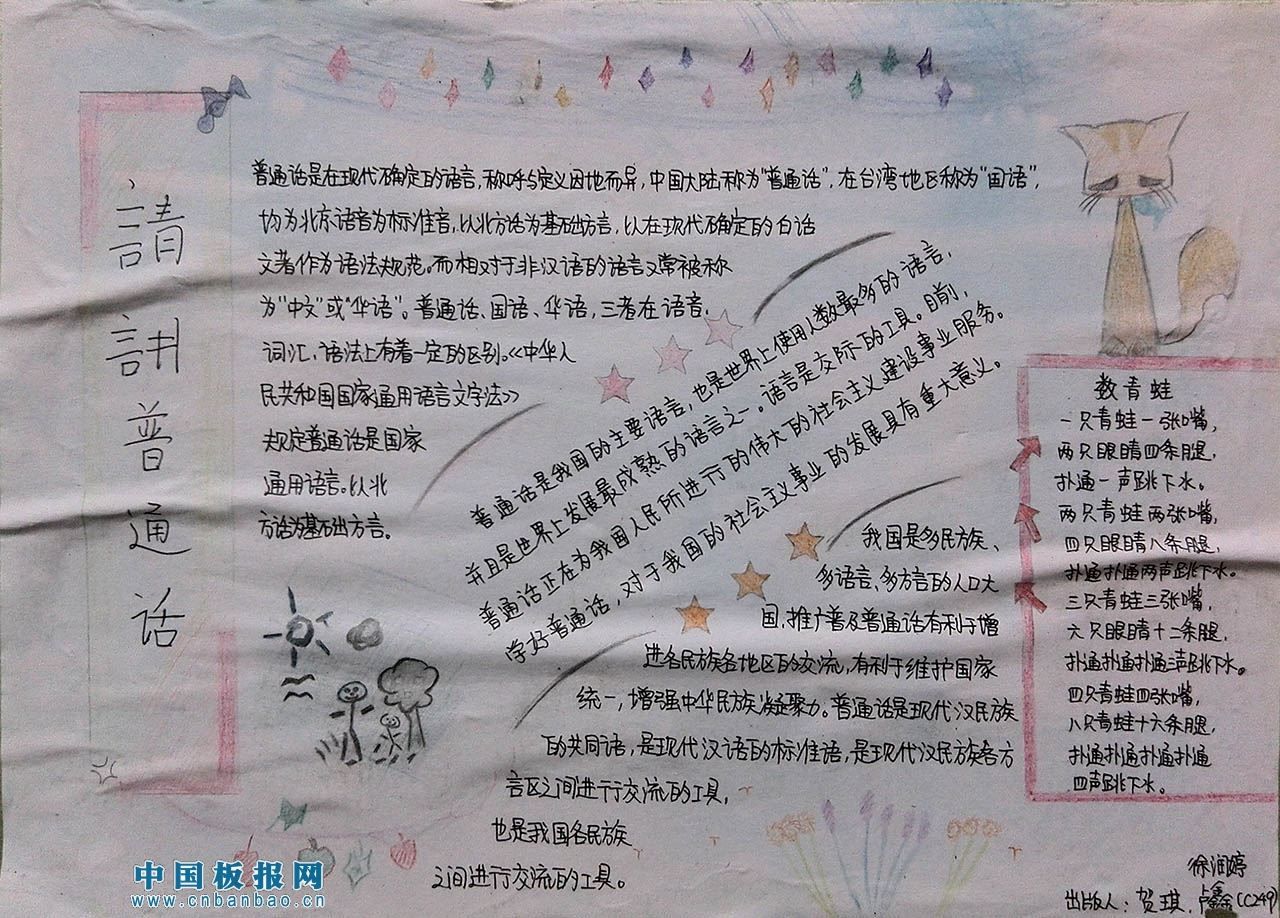 請
講
普
通
话
普通话是在现代确定的语言,称呼与定义因地而异,中国大陆称为"普通话",在台湾地区称为"国语",
均为北京语音为标准音,以北方话为基础方言,以在现代确定的白话
文著作为语法规范。而相对于非汉语的语言又常被称
为"中文"或"华语"。普通话、国语、华语,三者在语音、
词汇、语法上有着一定的区别。《中华人
民共和国国家通用语言文字法》
规定普通话是国家
通用语言。以北
方话为基础方言。
普通话是我国的主要语言,也是世界上使用人数最多的语言,
并且是世界上发展最成熟的语言之一。语言是交际的工具。目前,
普通话正在为我国人民所进行的伟大的社会主义建设事业服务。
学好普通话,对于我国的社会主义事业的发展具有重大意义。
我国是多民族、
多语言、多方言的人口大
国,推广普及普通话有利于增
进各民族各地区的交流,有利于维护国家
统一,增强中华民族凝聚力。普通话是现代汉民族
的共同语,是现代汉语的标准语,是现代汉民族各方
言区之间进行交流的工具,
也是我国各民族
之间进行交流的工具。
数青蛙
一只青蛙一张嘴,
两只眼睛四条腿,
扑通一声跳下水。
两只青蛙两张嘴,
四只眼睛八条腿,
扑通扑通两声跳下水。
三只青蛙三张嘴,
六只眼睛十二条腿,
扑通扑通扑通三声跳下水。
四只青蛙四张嘴,
八只青蛙十六条腿,
扑通扑通扑通扑通
四声跳下水。
徐润婷
出版人:贺琪、卢鑫(C249)
中国板报网
www.cnbanbao.cn